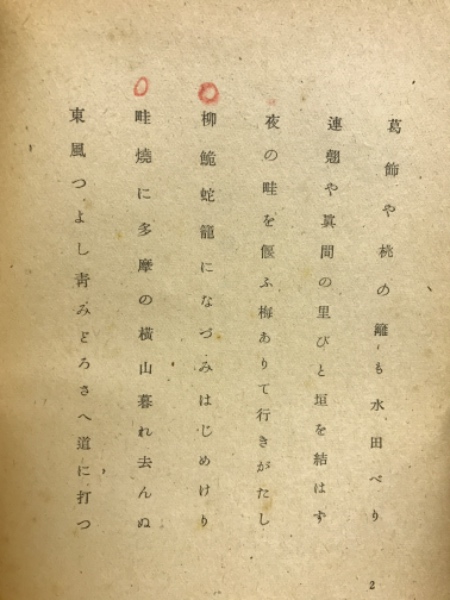 葛飾や桃の籬も水田べり
連翹や眞間の里びと垣を結はず
夜の畦を偃ふ梅ありて行きがたし
柳鮠蛇籠になづみはじめけり
畦燒に多摩の横山暮れ去んぬ
東風つよし靑みどろさへ道に打つ
2